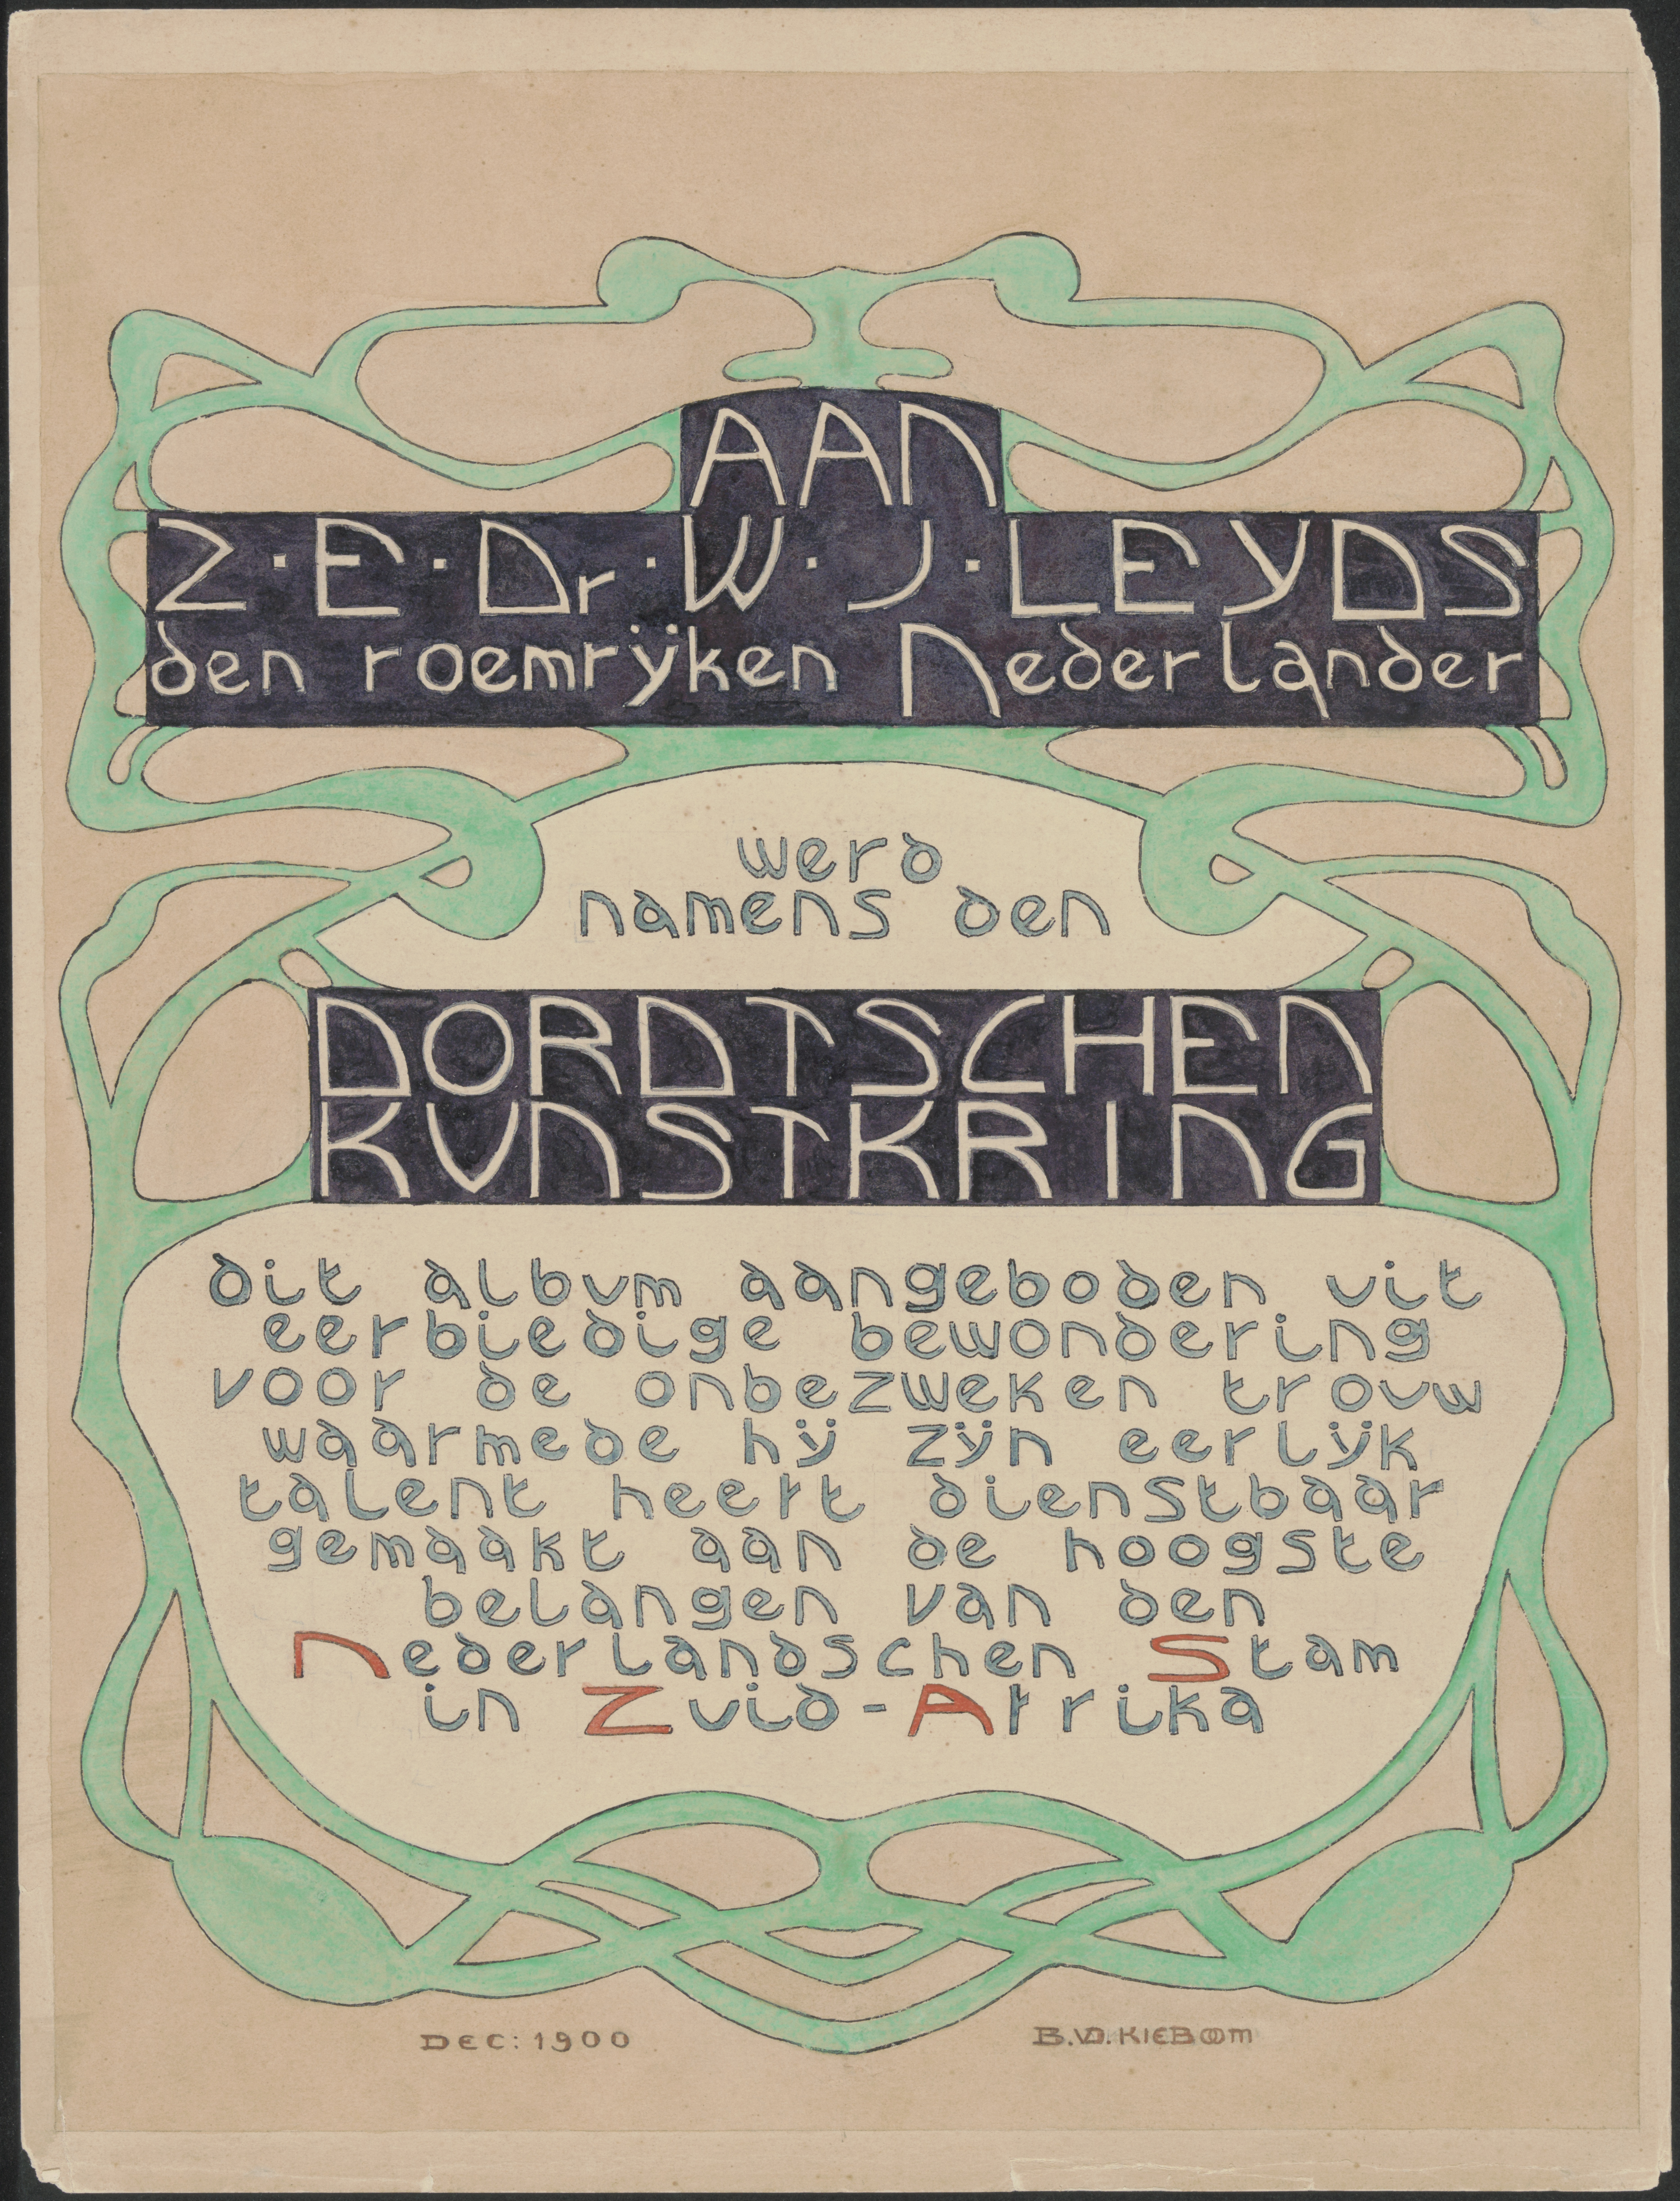 AAN
Z·E·Dr·W·J·LEYDS
den roemrÿken Nederlander
werd
namens den
DORDTSCHEN
KVNSTKRING
dit albvm aangeboden vit
eerbiedige bewondering
voor de onbezweken trovw
waarmede hÿ zÿn eerlÿk
talent heeft dienstbaar
gemaakt aan de hoogste
belangen van den
Nederlandschen Stam
in Zvid-Afrika
DEC: 1900
B.V.D.KIEBOOM